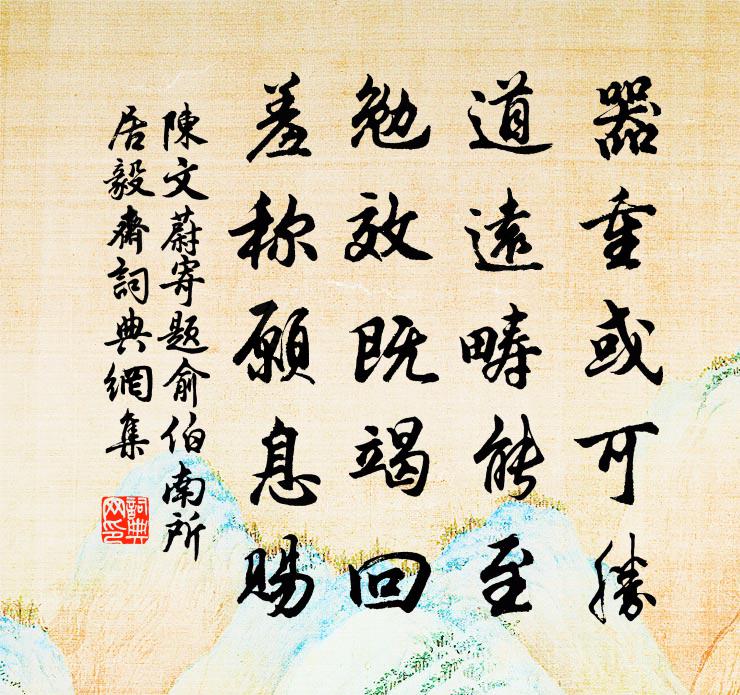 器重或可勝
道遠疇能至
勉效既竭回
羞称願息賜
陳文蔚寄題俞伯南所
居毅齋詞典網集
詞典
网印